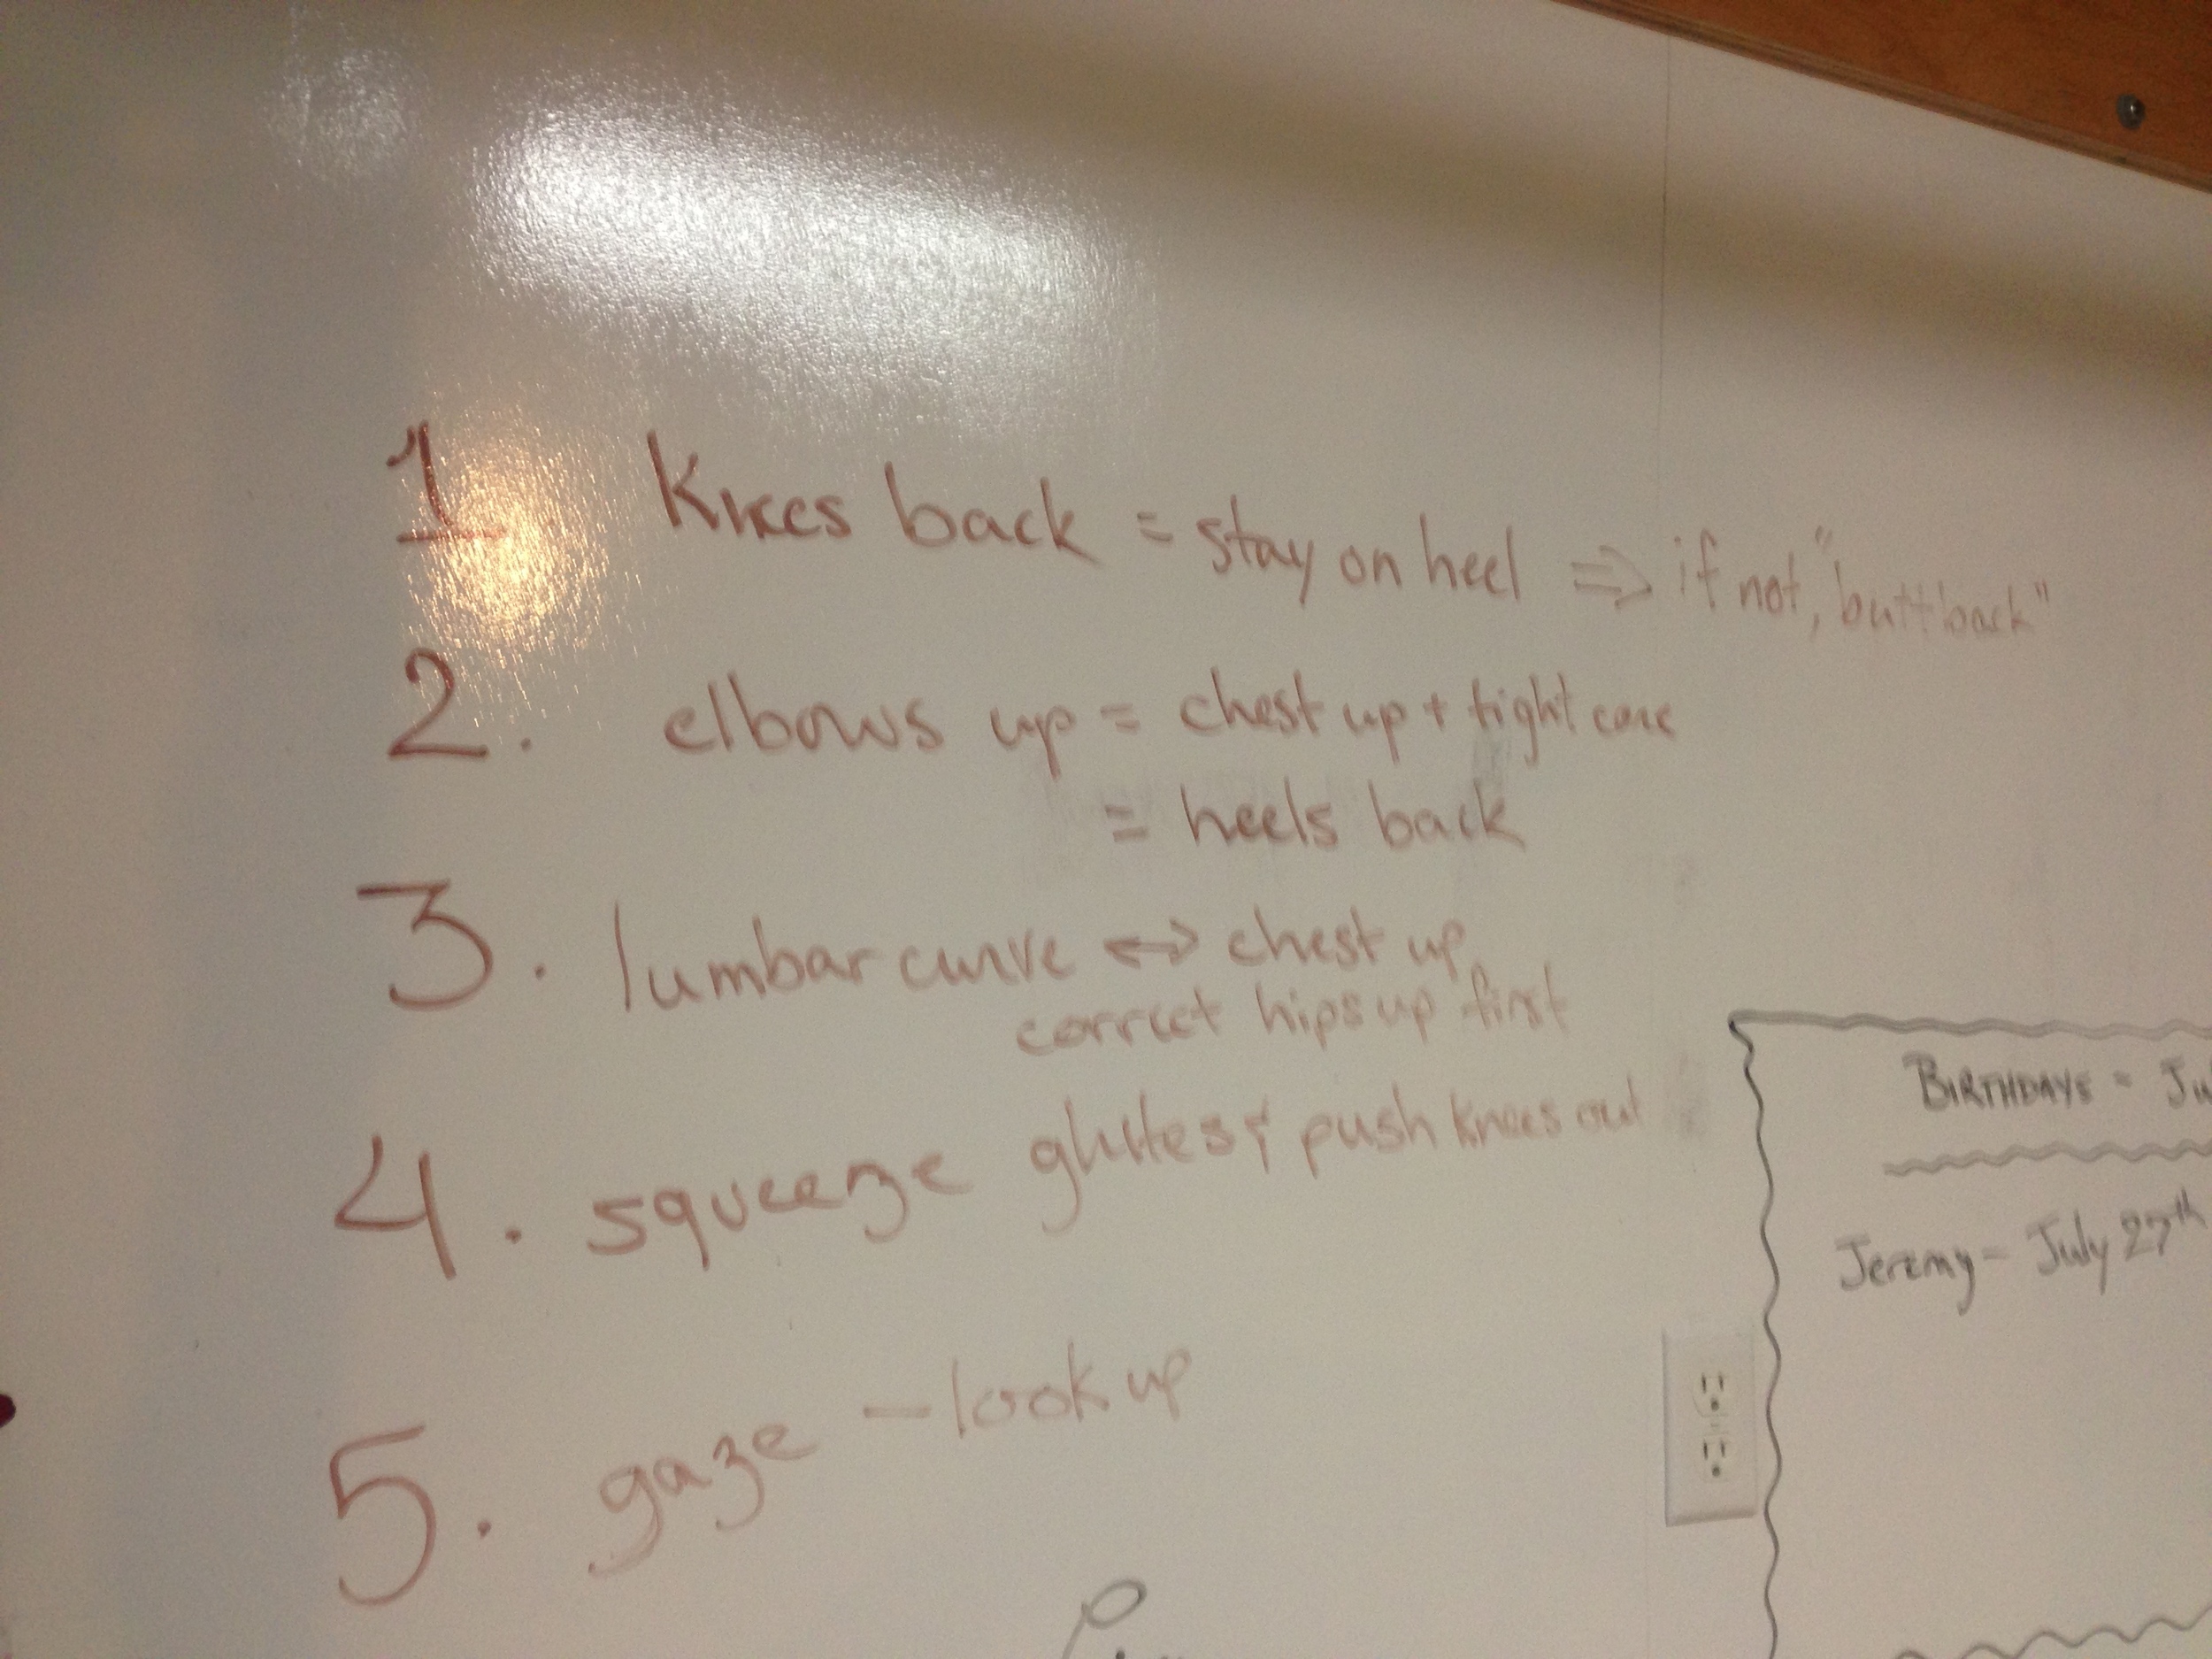 1. Knees back = stay on heel => if not, "butt back"
2. elbows up = chest up + tight core
= heels back
3. lumbar curve <-> chest up
correct hips up first
4. squeeze glutes & push knees out
5. gaze - look up
BIRTHDAYS = Ju
Jeremy - July 27th